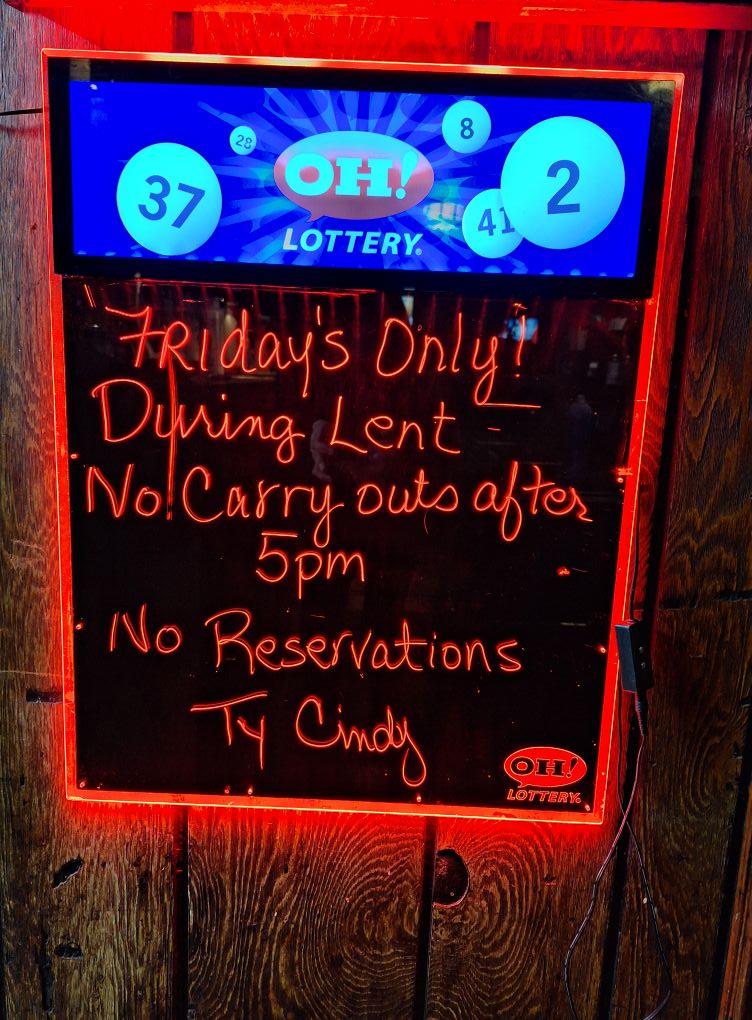 37
28
OH!
LOTTERY®
8
41
2
FRIday's Only!
During Lent
No Carry outs after
5pm
No Reservations
Ty Cindy
OH!
LOTTERY®